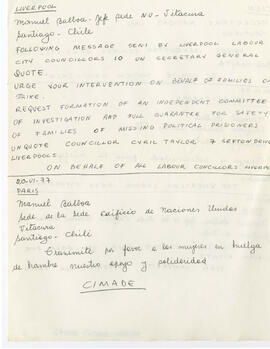 LIVERPOOL
Manuel Balboa - Jefe Sede NU - Vitacura
Santiago - Chile
FOLLOWING MESSAGE SENT BY LIVERPOOL LABOUR
CITY COUNCILLORS TO UN SECRETARY GENERAL
QUOTE
URGE YOUR INTERVENTION ON BEHALF OF FAMILIES ON
REQUEST FORMATION OF AN INDEPENDENT COMMITTEE
OF INVESTIGATION AND FULL GUARANTEE FOR SAFETY
OF FAMILIES OF MISSING POLITICAL PRISONERS
UNQUOTE COUNCILLOR CYRIL TAYLOR 7 SEFTON DRIVE
LIVERPOOL8.
ON BEHALF OF ALL LABOUR COUNCILLORS
20-VI-77
PARIS
Manuel Balboa
Jefe de la Sede Edificio de Naciones Unidas
Vitacura
Santiago - Chile
Transmite por favor a las mujeres en huelga
de hambre nuestro apoyo y solidaridad
CIMADE